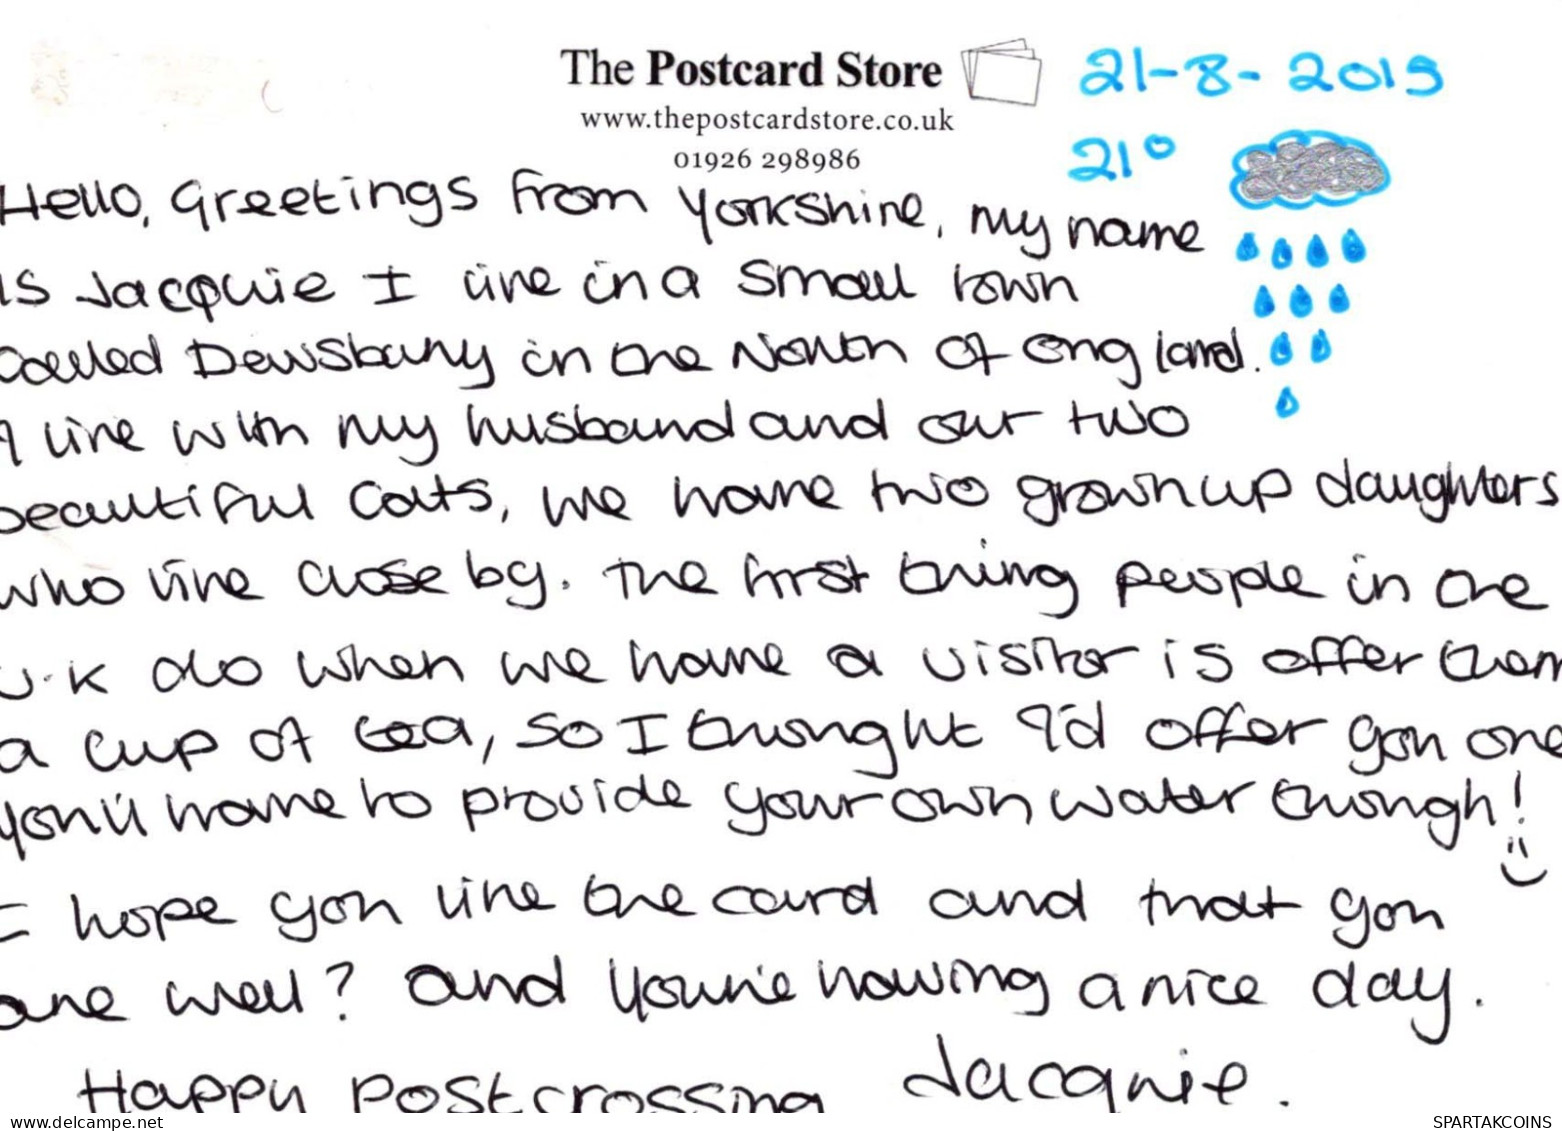 The Postcard Store
www.thepostcardstore.co.uk
01926 298986
21-8-2019
21°
Hello, Greetings from Yorkshire, my name
is Jacquie I live in a small town
called Dewsbury in the North of England.
I live with my husband and our two
beautiful cats, we have two grown up daughters
who live close by. The first thing people in the
U.K do when we have a visitor is offer them
a cup of tea, so I thought I'd offer you one
you'll have to provide your own water though!
I hope you like the card and that you
are well? and you're having a nice day.
Happy Postcrossing Jacquie.
www.delcampe.net
SPARTAKCOINS